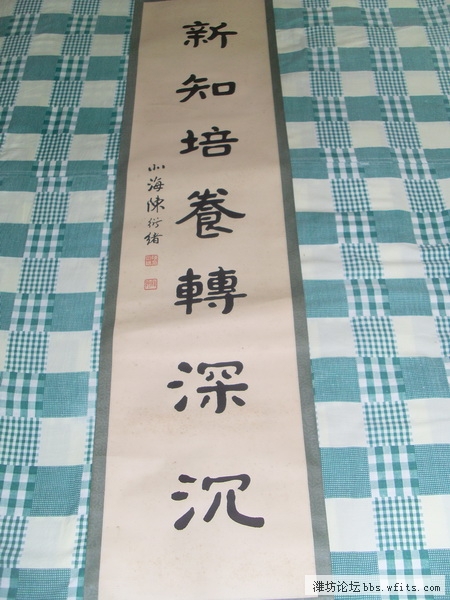 新知培養轉深沉
北海陳衍緒
潍坊论坛bbs.wfits.com